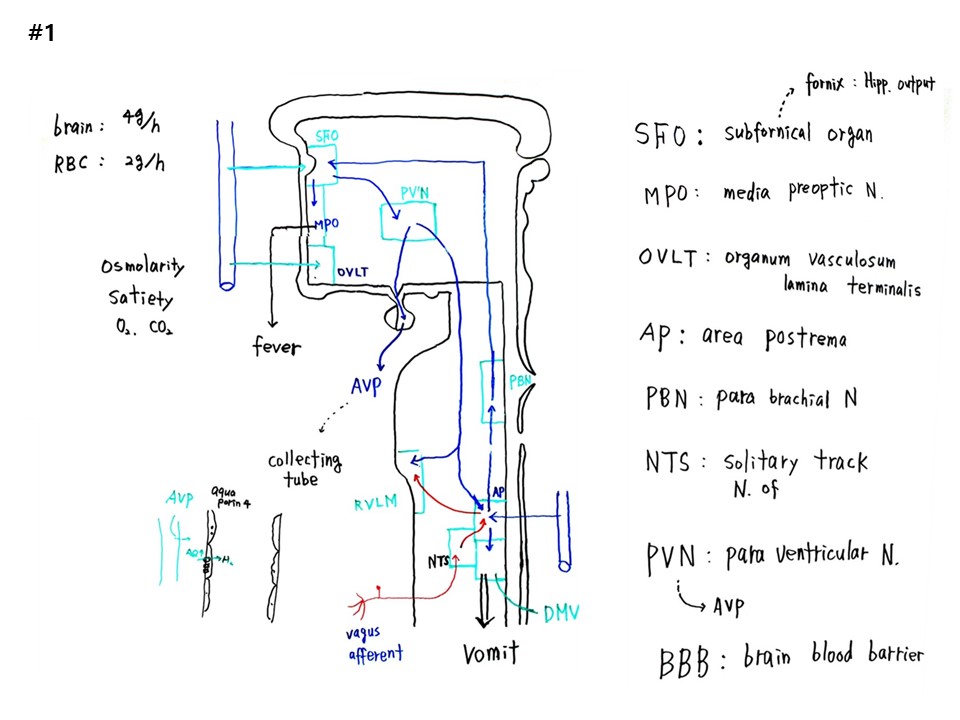 #1
brain: 4g/h
RBC : 2g/h
Osmolarity
Satiety
O₂. CO₂
SFO
PVN
MPO
OVLT
fever
AVP
collecting
tube
PBN
AP
RVLM
NTS
DMV
vagus
afferent
Vomit
AVP
aqua
porin 4
fornix : Hipp. output
SFO : subfornical organ
MPO : media preoptic N.
OVLT : organum vasculosum
lamina terminalis
AP : area postrema
PBN : para brachial N
NTS : Solitary track
N. of
PVN : para ventricular N.
AVP
BBB : brain blood barrier